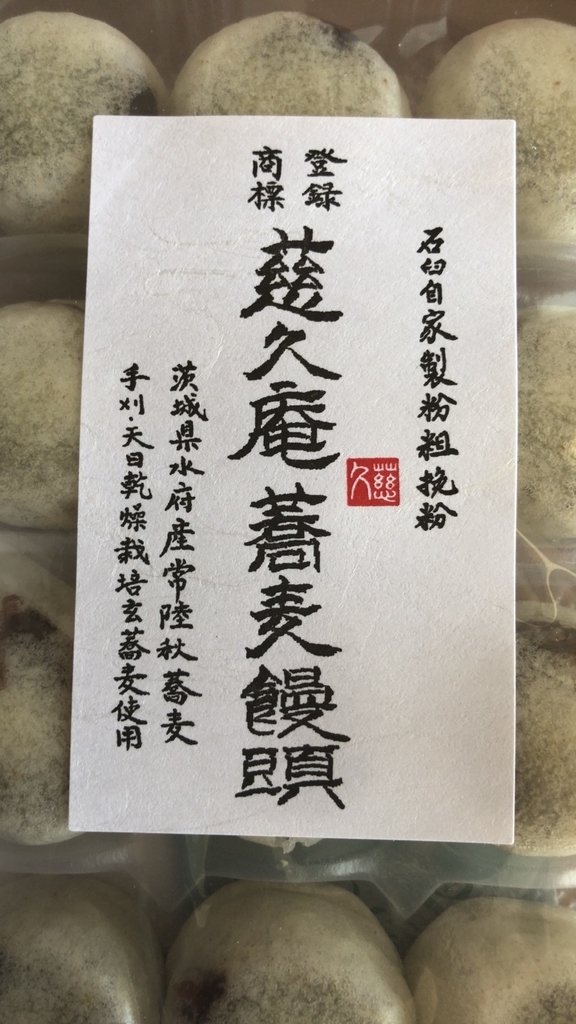 石臼自家製粉粗挽粉
登録
商標
慈久庵蕎麦饅頭
慈久
茨城県水府産常陸秋蕎麦
手刈・天日乾燥栽培玄蕎麦使用